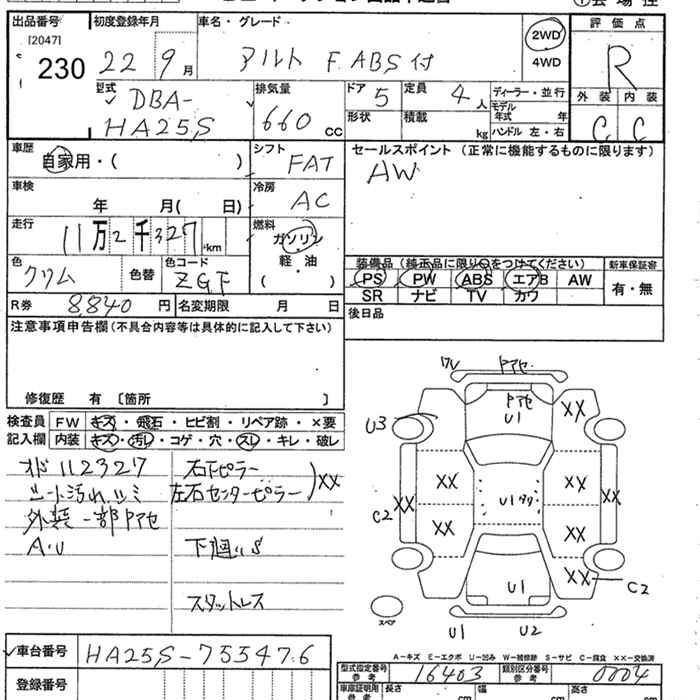 出品番号 初度登録年月 車名・グレード 評価点
[2047]
230 22年9月 アルト F.ABS付 2WD 4WD R
型式 DBA-HA25S
排気量 660 cc
ドア 5 定員 4人 ディーラー・並行
形状 積載 kg モデル年式 年式 ハンドル 左・右
外装 内装
C C
車歴 自家用・( )
シフト FAT
セールスポイント(正常に機能するものに限ります)
AW
車検 年 月( 日)
冷房 AC
走行 11万2千327km
燃料 ガソリン 軽・油 ( )
色 クリム 色替 色コード ZGF
装備品(純正品に限り○をつけてください) 新車保証書
PS PW ABS エアB AW 有・無
SR ナビ TV カワ
R券 8,840円 名変期限 月 日
後日品
注意事項申告欄(不具合内容等は具体的に記入して下さい)
修復歴 有 〔箇所 〕
検査員記入欄
FW キズ・飛石・ヒビ割・リペア跡・×要
内装 キズ・汚レ・コゲ・穴・スレ・キレ・破レ
オド112327
シート汚れ シミ
外装一部アセ
A・U
右Fピラー
左右センターピラー )××
下廻りS
スタットレス
アセ
アセ
U1
U3
××
×× ××
C2 ×× U1 ××
×× ××
×× C2
U1
スペア
U1 U2
A-キズ E-エクボ U-凹み W-補修跡 S-サビ C-腐食 ××-交換済
車台番号 HA25S-755476
登録番号
型式指定番号 参考 16403 類別区分番号 参考 0004
車庫証明用 参考 長さ cm 幅 cm 高さ cm